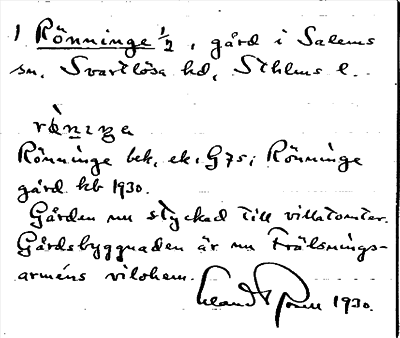 1 Rönninge 1/2, gård i Salems
sn, Svartlösa hd, Sthlms l.
Rönninge bek. ek. G75; Rönninge
gård kb 1930.
Gården nu styckad till villatomter.
Gårdsbyggnaden är nu Frälsnings-
arméns vilohem.
1930.